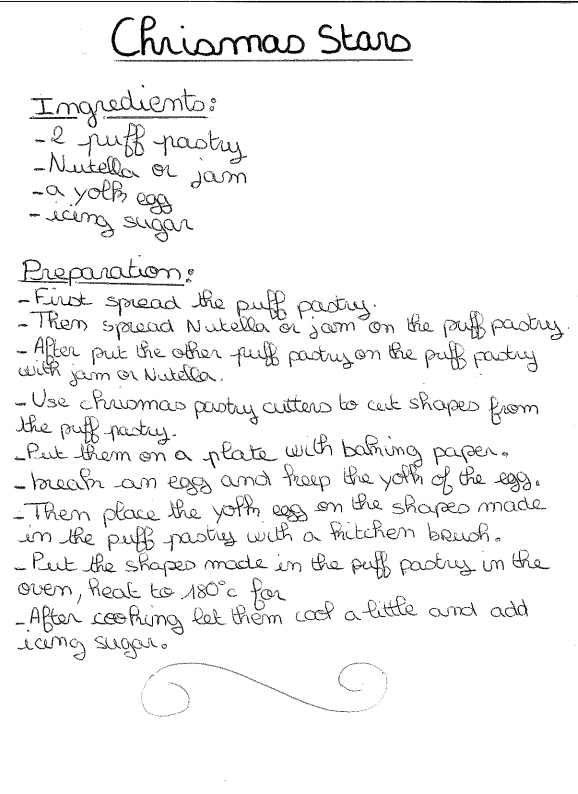 Chrismas Stars
Ingredients:
- 2 puff pastry
- Nutella or jam
- a yolk egg
- icing sugar
Preparation:
- First spread the puff pastry.
- Then spread Nutella or jam on the puff pastry.
- After put the other puff pastry on the puff pastry
with jam or Nutella.
- Use chrismas pastry cutters to cut shapes from
the puff pastry.
- Put them on a plate with baking paper.
- break an egg and keep the yolk of the egg.
- Then place the yolk egg on the shapes made
in the puff pastry with a kitchen brush.
- Put the shapes made in the puff pastry in the
oven, heat to 180°c for
- After cooking let them cool a little and add
icing sugar.